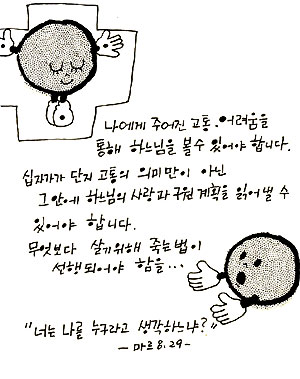 나에게 주어진 고통. 어려움을
통해 하느님을 볼수 있어야 합니다.
십자가가 단지 고통의 의미만이 아닌
그안에 하느님의 사랑과 구원 계획을 읽어낼 수
있어야 합니다.
무엇보다 살기위해 죽는법이
선행되어야 함을...
"너는 나를 누구라고 생각하느냐?"
- 마르 8.29 -